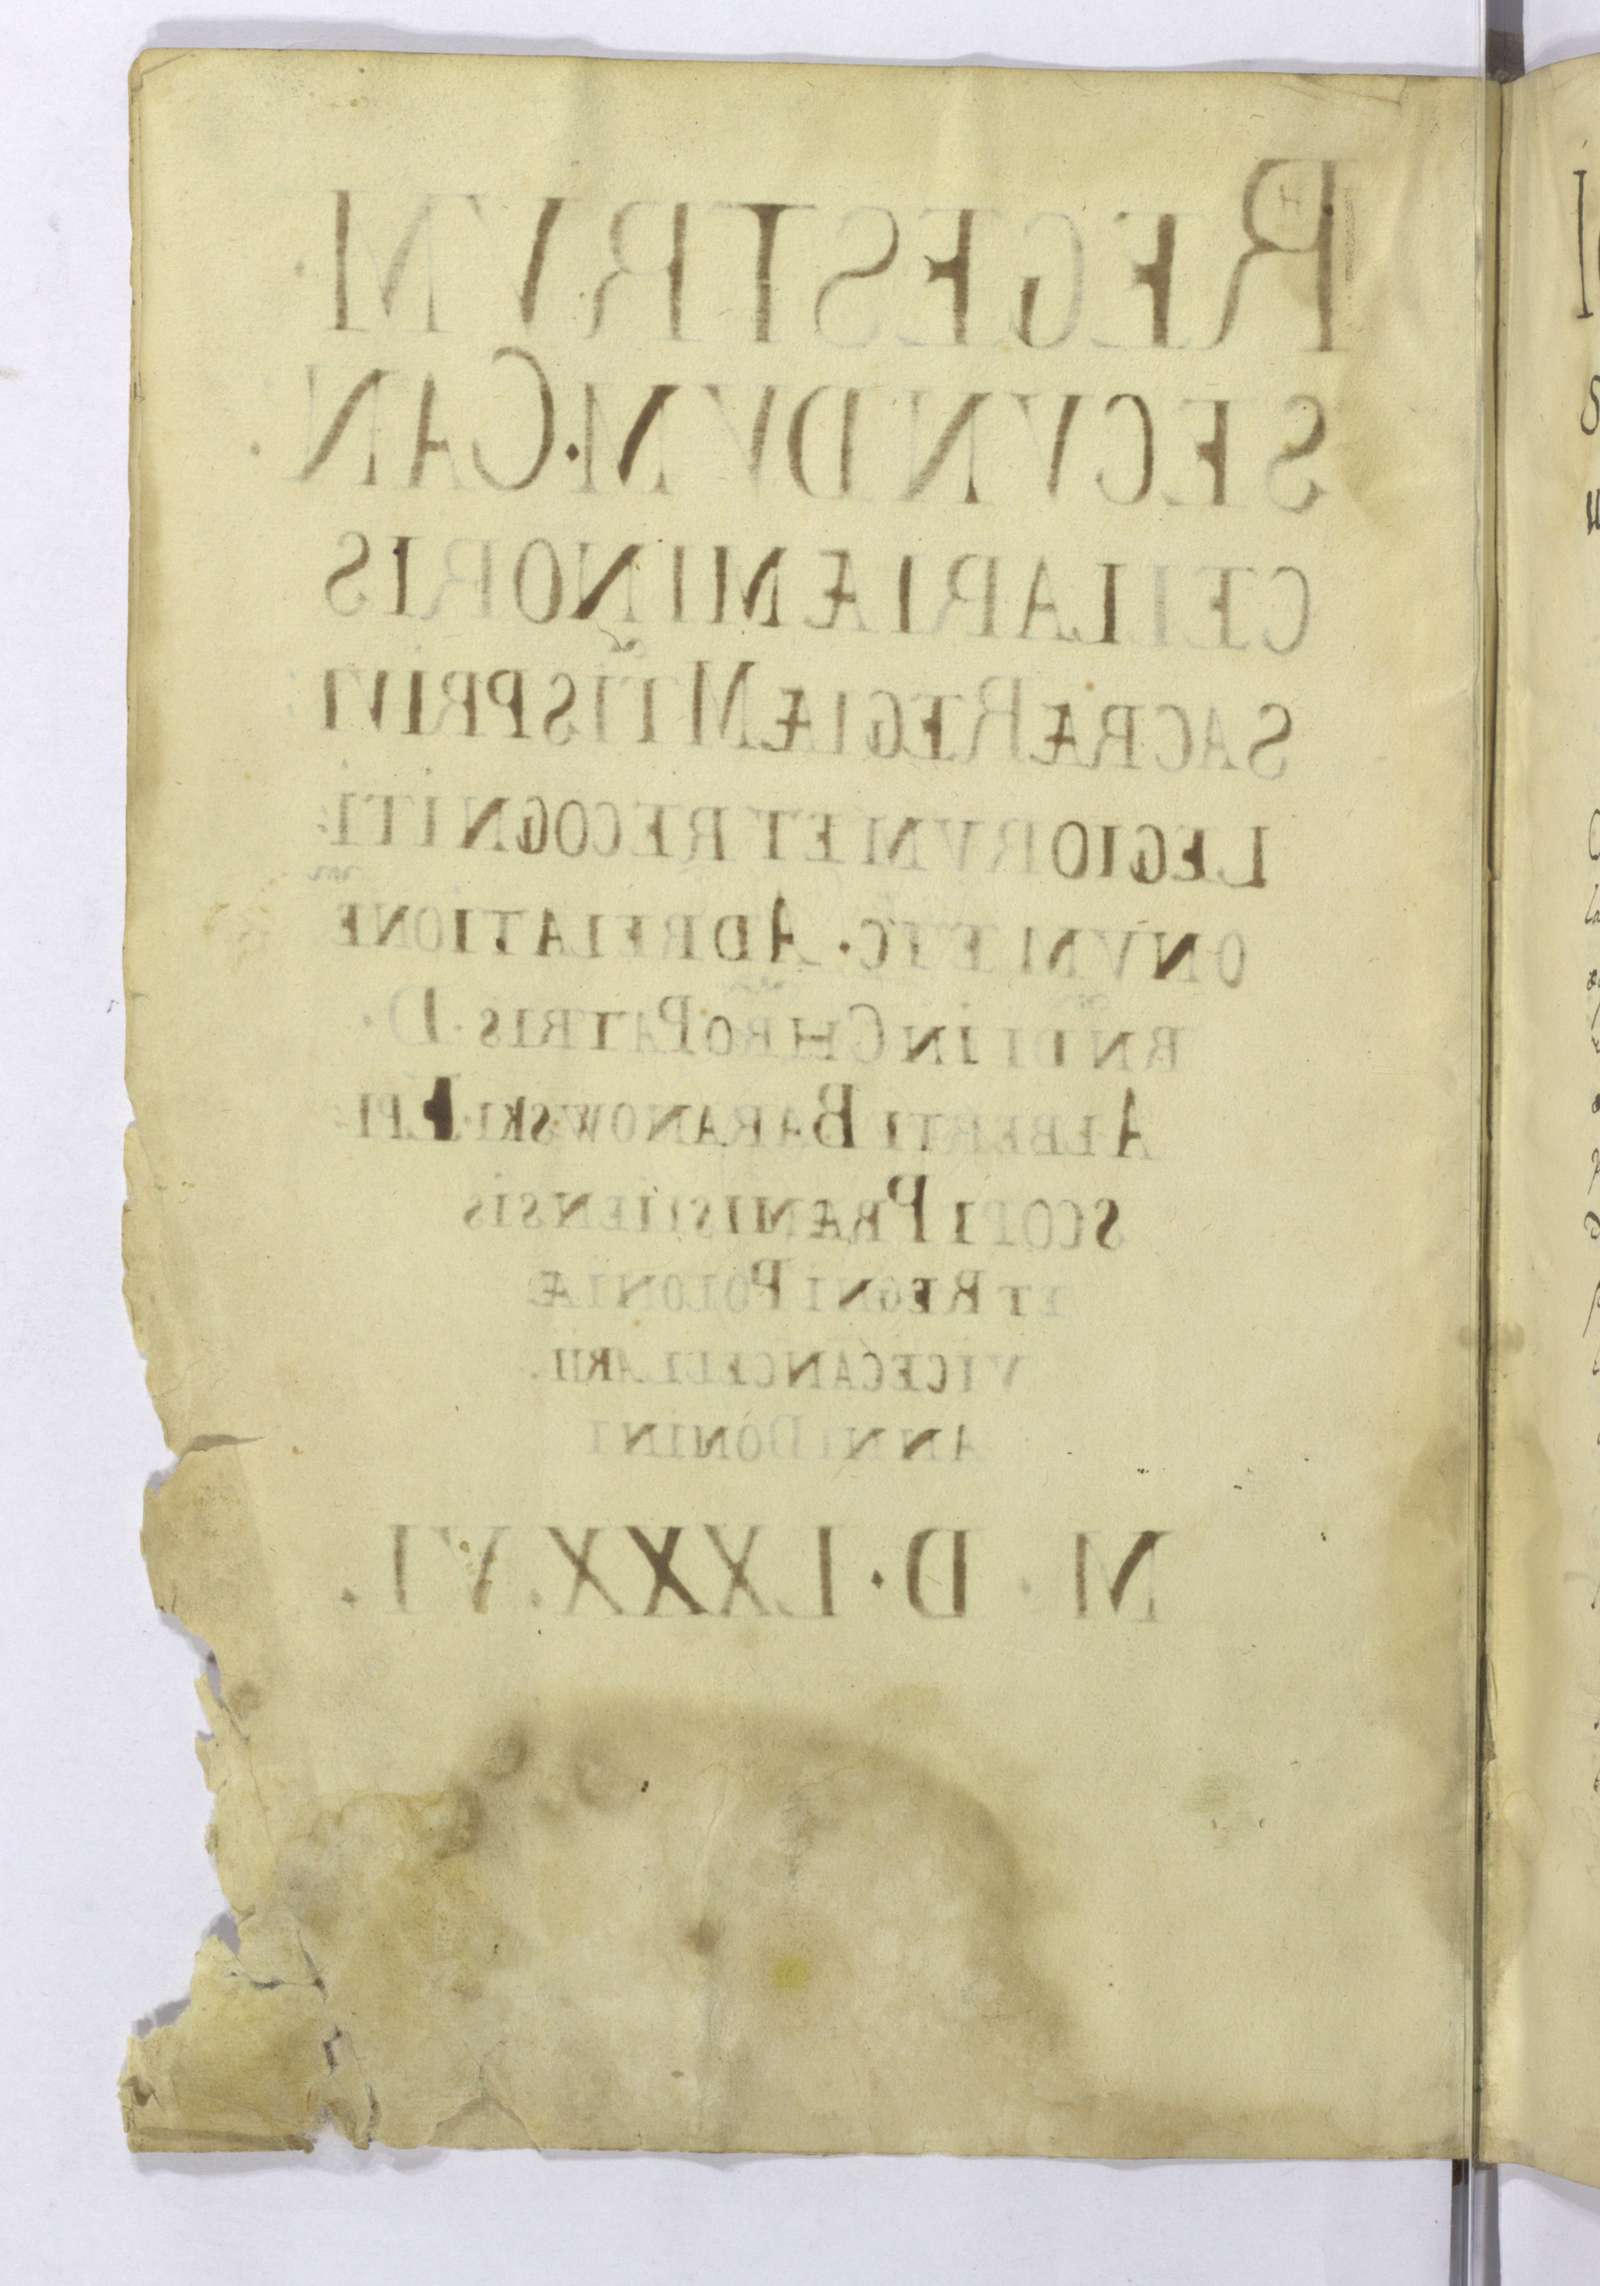 REGESTRVM
SECVNDVM · CAN
CELLARIÆ MINORIS
SACRÆ REGIÆ MTIS PRIVI
LEGIORVM ET RECOGNITI
ONVM ETC · AD RELATIONE
RNDI IN CHRO PATRIS · D ·
ALBERTI BARANOWSKI · EPI
SCOPI PRÆMISLIENSIS
ET REGNI POLONIÆ
VICECANCELLARII ·
ANNI DOMINI
M · D · LXXX · VI ·